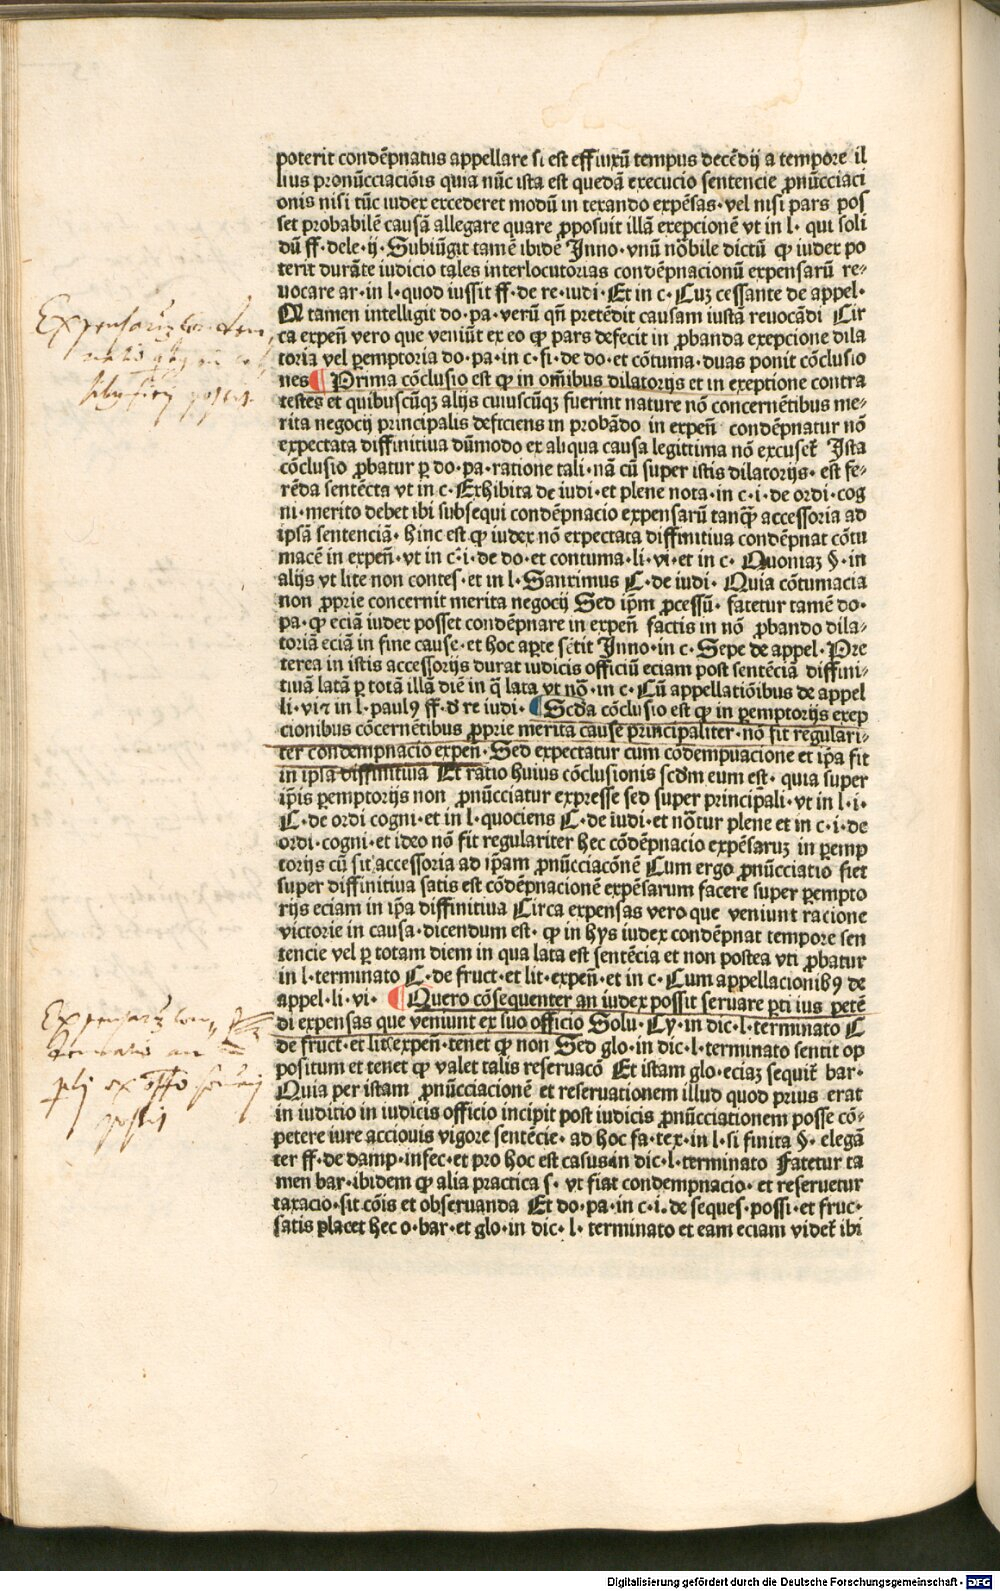 poterit condēpnatus appellare si est effluxū tempus decēdij a tempore il
lius pronūcciaciōis quia nūc ista est quedā execucio sentencie ꝓnūcciaci
onis nisi tūc iudex excederet modū in texando expēsas· vel nisi pars pos
set probabilē causā allegare quare ꝓposuit illā exepcionē vt in l· qui soli
dū ff· dele· ij· Subiūgit tamē ibidē Inno· vnū nōbile dictū ꝙ iudex po
terit durāte iudicio tales interlocutorias condēpnacionū expensarū re⸗
uocare ar· in l· quod iussit ff· de re· iudi· Et in c· Cuz cessante de appel·
tamen intelligit do· pa· verū qn̄ pretēdit causam iustā reuocādi Cir
ca expen̄ vero que veniūt ex eo ꝙ pars defecit in ꝓbanda exepcione dila
toria vel ꝑemptoria do· pa· in c· fi· de do· et cōtuma· duas ponit cōclusio
nes ¶ Prima cōclusio est ꝙ in om̄ibus dilatorijs et in exeptione contra
testes et quibuscūqꝫ alijs cuiuscūqꝫ fuerint nature nō concernētibus me⸗
rita negocij principalis deficiens in probādo in expen̄ condēpnatur nō
expectata diffinitiua dūmodo ex aliqua causa legittima nō excuset̄ Ista
cōclusio ꝓbatur ꝑ do· pa· ratione tali· nā cū super istis dilatorijs· est fe⸗
rēda sentēcta vt in c· Exhibita de iudi· et plene nota· in c· i· de ordi· cog
ni· merito debet ibi subsequi condēpnacio expensarū tanꝙ̄ accessoria ad
ipsā sentenciā· hinc est ꝙ iudex nō expectata diffinitiua condēpnat cōtu
macē in expen̄· vt in c· i· de do· et contuma· li· vi· et in c· Quoniaꝫ §· in
alijs vt lite non contes· et in l· Sanximus C· de iudi· Quia cōtumacia
non ꝓprie concernit merita negocij Sed ip̄m ꝓcessū· fatetur tamē do·
pa· ꝙ eciā iudex posset condēpnare in expen̄ factis in nō ꝓbando dila⸗
toriā eciā in fine cause· et hoc aꝑte sētit Inno· in c· Sepe de appel· Pre
terea in istis accessorijs durat iudicis officiū eciam post sentēciā diffini⸗
tiuā latā ꝑ totā illā diē in q̄ lata vt nō· in c· Cū appellatiōibus de appel
li· vi· ⁊ in l· paulꝰ ff· d re iudi· ¶ Scd̄a cōclusio est ꝙ in ꝑemptorijs exep
cionibus cōcernētibus ꝓprie merita cause principaliter· nō fit regulari⸗
ter condempnacio expen̄· Sed expectatur cum cōdempuacione et ip̄a fit
in ipsa diffinitiua Et ratio huius cōclusionis scd̄m eum est· quia super
ip̄is ꝑemptorijs non ꝓnūcciatur expresse sed super principali· vt in l· i·
C· de ordi cogni· et in l· quociens C· de iudi· et nōtur plene et in c· i· de
ordi· cogni· et ideo nō fit regulariter hec cōdēpnacio expēsaruꝫ in ꝑemp
torijs cū sit accessoria ad ip̄am ꝓnūcciacōnē Cum ergo ꝓnūcciatio fiet
super diffinitiua satis est cōdēpnacionē expēsarum facere super ꝑempto
rijs eciam in ip̄a diffinitiua Circa expensas vero que veniunt racione
victorie in causa· dicendum est· ꝙ in hys iudex condēpnat tempore sen
tencie vel ꝑ totam diem in qua lata est sentēcia et non postea vti ꝓbatur
in l· terminato C· de fruct· et lit· expen̄· et in c· Cum appellacionibꝰ de
appel· li· vi· ¶ Quero cōsequenter an iudex possit seruare ꝑti ius petē
di expensas que veniunt ex suo officio Solu· Cy· in dic· l· terminato C
de fruct· et lit· expen̄· tenet ꝙ non Sed glo· in dic· l· terminato sentit op
positum et tenet ꝙ valet talis reseruacō Et istam glo· eciaꝫ sequit̄ bar·
Quia per istam ꝓnūcciacionē et reseruationem illud quod prius erat
in iuditio in iudicis officio incipit post iudicis ꝓnūcciationem posse cō⸗
petere iure acciouis vigore sentēcie· ad hoc fa· tex· in l· si finita §· elegā
ter ff· de damp· infec· et pro hoc est casus in dic· l· terminato Fatetur ta
men bar· ibidem ꝙ alia practica s· vt fiat condempnacio· et reseruetur
taxacio· sit cōis et obseruanda Et do· pa· in c· i· de seques· possi· et fruc·
satis placet hec o· bar· et glo· in dic· l· terminato et eam eciam videt̄ ibi
Digitalisierung gefördert durch die Deutsche Forschungsgemeinschaft - DFG